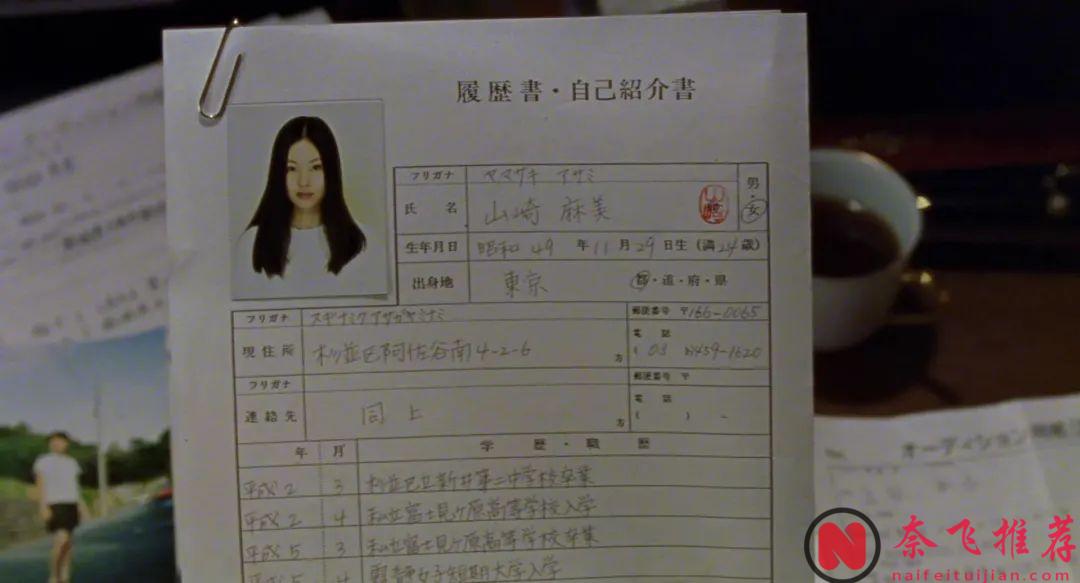 履歴書・自己紹介書
フリガナ ヤマザキ アサミ
氏名 山崎 麻美
男・女
生年月日 昭和 49 年 11 月 29 日生 (満 24 歳)
出身地 東京 都・道・府・県
フリガナ スギナミクアサガヤミナミ
郵便番号 〒166-0065
現住所 杉並区阿佐谷南4-2-6 方
電話 ( 03 )
フリガナ
郵便番号 〒
連絡先 同上 方
電話 ( ) -
年 月 学歴・職歴
平成2 3 杉並区立新井第二中学校卒業
平成2 4 私立富士見ヶ原高等学校入学
平成5 3 私立富士見ヶ原高等学校卒業
女子短期大学入学
No.
オーディション
N
奈飞推荐
naifeituijian.com